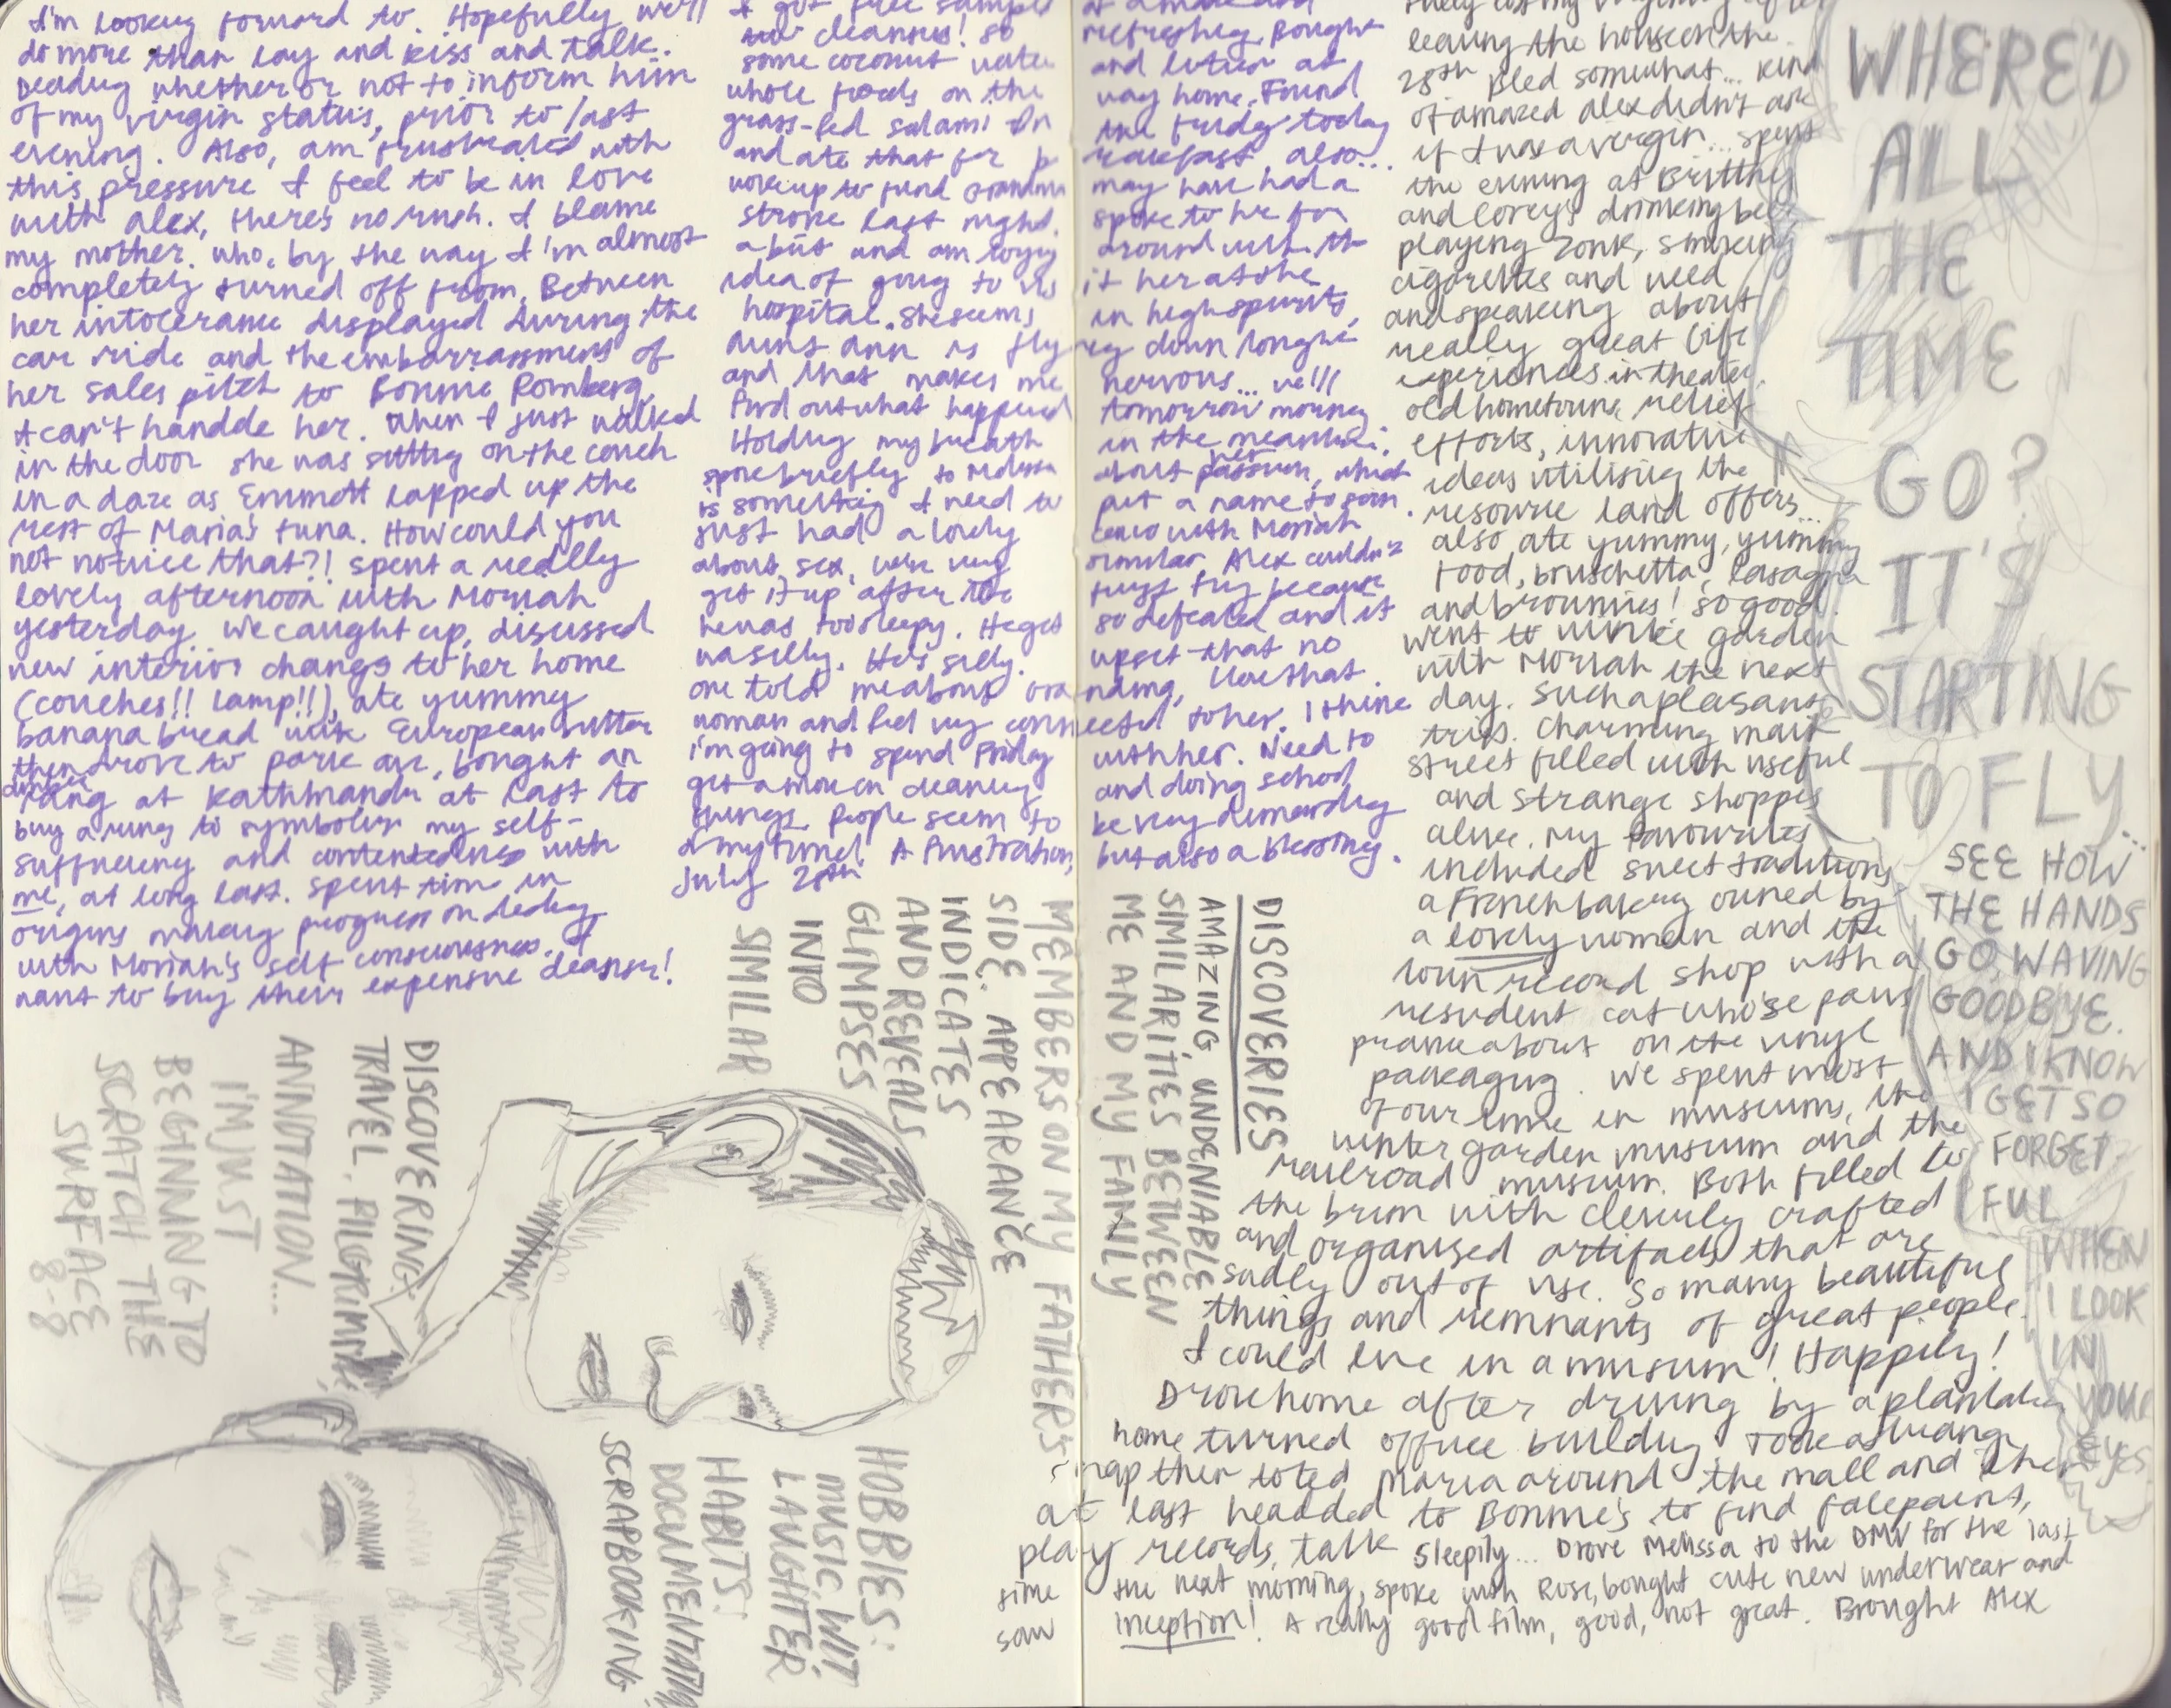 I'm looking forward to. Hopefully we'll
do more than lay and kiss and talk.
whether or not to inform him
of my virgin status, prior to last
evening. Also, am frustrated with
this pressure I feel to be in love
with Alex, there's no rush. I blame
my mother. who, by the way I'm almost
completely turned off from. Between
her intolerance displayed during the
car ride and the embarrassment of
her sales pitch to Bonnie Romberg,
I can't handde her. When I just walked
in the door she was sitting on the couch
in a daze as Emmett lapped up the
rest of Maria's tuna. How could you
not notice that?! spent a really
lovely afternoon with Moriah
yesterday. We caught up, discussed
new interior changs to her home
(couches!! lamp!!), ate yummy
banana bread with European butter
then drove to park ave, bought an
ring at Kathmandu at last to
buy a ring to symbolize my self-
sufficiency and contentedness with
me, at long last. spent time in
origins making progress on
with Moriah's self consciousness. I
want to buy their expensive cleanser!
I got free sample
cleansers! So
some coconut wate
whole foods on the
grass-fed salami in
and ate that for
woke up to find Grandma
stroke last night.
a bit and am
idea of going to vis
hospital. She seems
Aunt Ann is flying down
and that makes me
find out what happened
Holding my breath
spoke briefly to Melissa
is something I need to
just had a lovely
about sex, were very
get it up after the
he was too sleepy. He gets
was silly. He's silly.
one told me about
woman and feel very connected to her. I think
I'm going to spend Friday
get a move on cleaning
things. People seem to
of my time! A frustration,
July 28th
refreshing. Bought
and lotion at
way home. Found
the fridge today
also...
may have had a
spoke to her for
around with the
it her as she
in high spirits,
tonight
nervous... we'll
tomorrow morning
in the meantime.
about her passion, which
put a name to
with Moriah
similar. Alex couldn't
first try because
so defeated and it
upset that no
love that
with her. Need to
and doing school
be very demanding
but also a blessing.
leaving the house on the
28th. Bled somewhat... Kind
of amazed Alex didn't ask
if I was a virgin... spent
the evening at Brittney
and Corey's drinking beer
playing zonk, smoking
cigarettes and weed
and speaking about
really great life
experiences in theater,
old hometowns, relief
efforts, innovative
ideas utilising the
resource land offers...
also ate yummy, yummy
food, bruschetta, lasagna
and brownies! so good.
went to winter garden
with Moriah the next
day. Such a pleasant
trip. Charming main
street filled with useful
and strange shoppes
alive. My favourites
included sweet traditions
a French bakery owned by
a lovely woman and the
town record shop with a
resident cat whose paws
prance about on the vinyl
packaging. We spent most
of our time in museums, the
winter garden museum and the
railroad museum. Both filled to
the brim with cleverly crafted
and organised artifacts that are
sadly out of use. So many beautiful
things and remnants of great people.
I could live in a museum! Happily!
Drove home after driving by a
home turned office building. Took a strange
nap then toted Maria around the mall and then
at last headded to Bonnie's to find
play records, talk sleepily... Drove Melissa to the DMV for the last
time the next morning, spoke with Rose, bought cute new underwear and
saw Inception! A really good film, good, not great. Brought Alex
WHERE'D
ALL
THE
TIME
GO?
IT'S
STARTING
TO FLY...
SEE HOW
THE HANDS
GO WAVING
GOODBYE.
AND I KNOW
I GET SO
FORGET-
FUL
WHEN
I LOOK
IN
YOUR
EYES
DISCOVERIES
AMAZING, UNDENIABLE
SIMILARITIES BETWEEN
ME AND MY FAMILY
MEMBERS ON MY FATHER'S
SIDE. APPEARANCE
INDICATES
AND REVEALS
GLIMPSES
INTO
SIMILAR
HOBBIES:
MUSIC, WIT
LAUGHTER.
HABITS:
DOCUMENTATION
SCRAPBOOKING
DISCOVERING:
TRAVEL. PILGRIMAGE
ANNOTATION...
I'M JUST
BEGINNING TO
SCRATCH THE
SURFACE
8-8